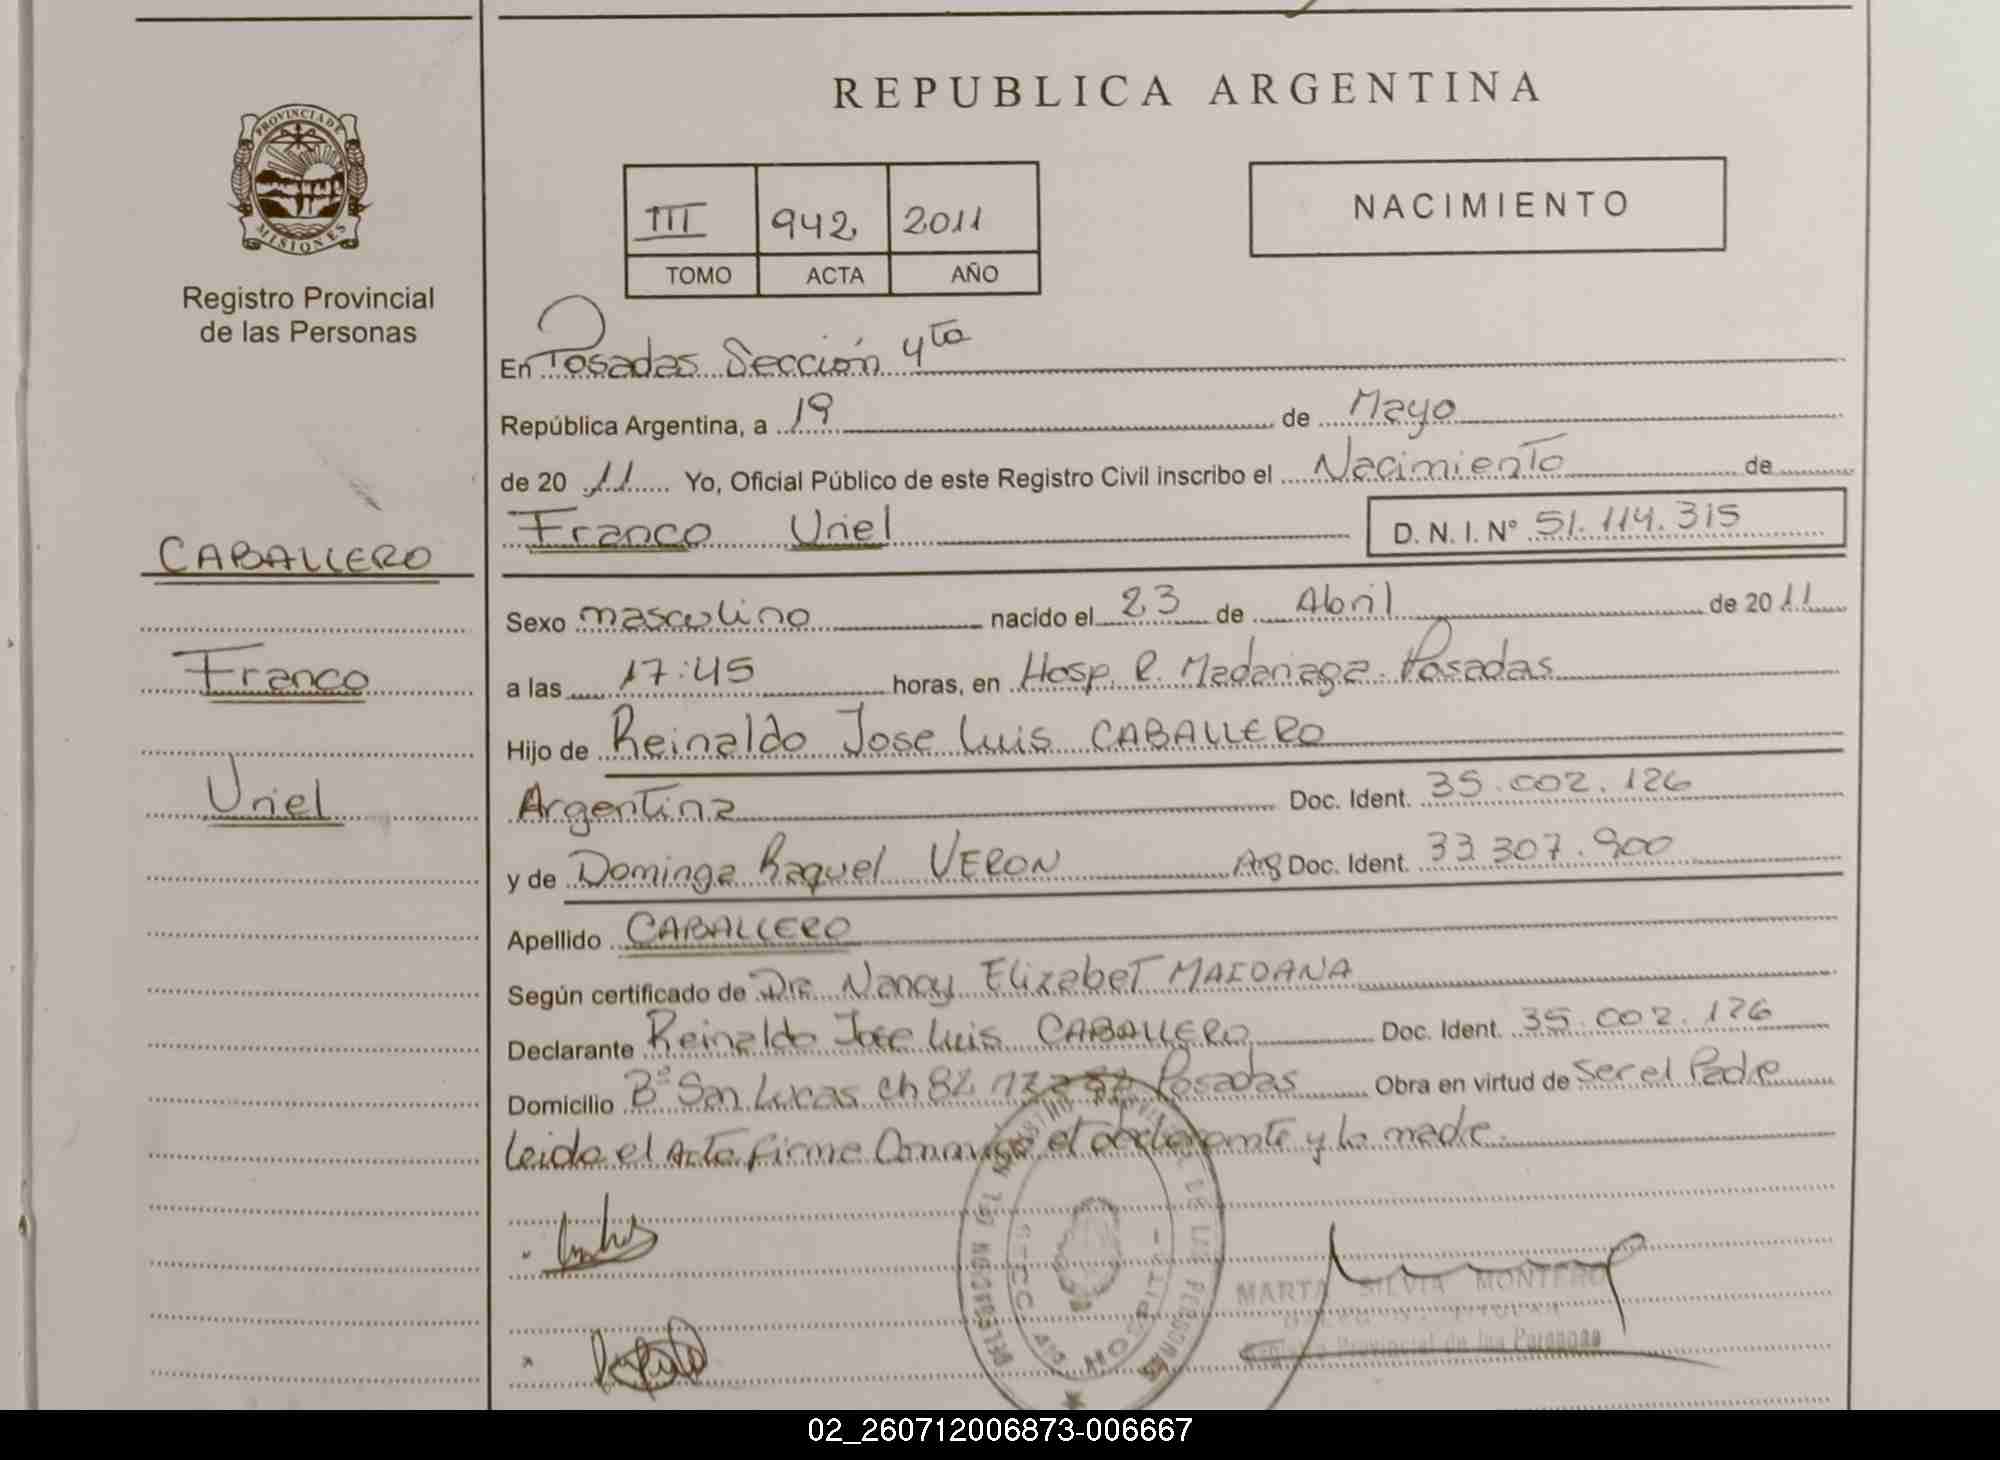 REPUBLICA ARGENTINA
PROVINCIA DE
MISIONES
Registro Provincial
de las Personas
III 942 2011
TOMO ACTA AÑO
NACIMIENTO
En Posadas Sección 4ta
República Argentina, a 19 de Mayo
de 2011 Yo, Oficial Público de este Registro Civil inscribo el Nacimiento de
Franco Uriel D.N.I. Nº 51.114.315
CABALLERO
Franco
Uriel
Sexo masculino nacido el 23 de Abril de 2011
a las 17:45 horas, en Hosp. R. Madariaga. Posadas
Hijo de Reinaldo Jose Luis CABALLERO
Argentina Doc. Ident. 35.002.126
y de Dominga Raquel VERON Arg Doc. Ident. 33.307.900
Apellido CABALLERO
Según certificado de Dra Nancy Elizabet MAIDANA
Declarante Reinaldo Jose Luis CABALLERO Doc. Ident. 35.002.126
Domicilio Bº San Lucas ch 82 Posadas Obra en virtud de Ser el Padre
Leido el Acta firma Conmigo el declarante y la madre.
MARTA SILVIA MONTERO
Provincial de las Personas
HOSPITAL
02_260712006873-006667